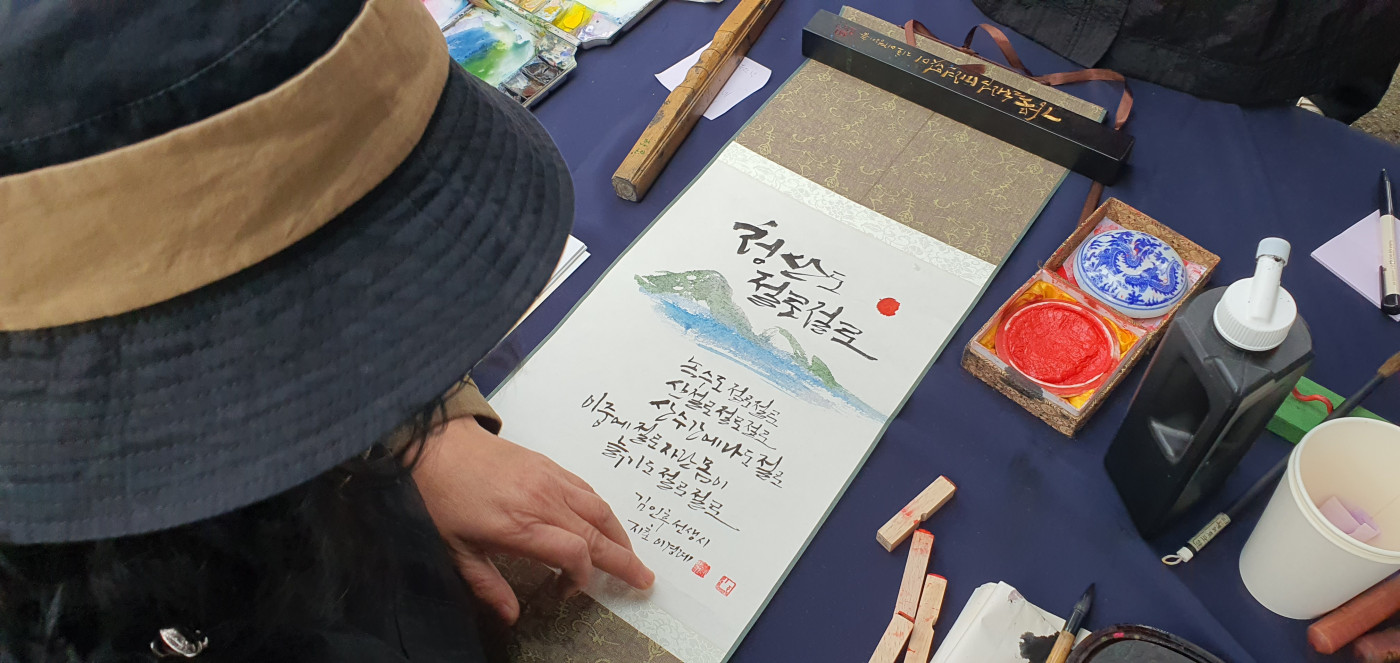 청산도
절로절로
녹수도절로절로
산절로절로절로
산수간에나도절로
이중에절로자란몸이
늙기도절로절로
김인후선생시